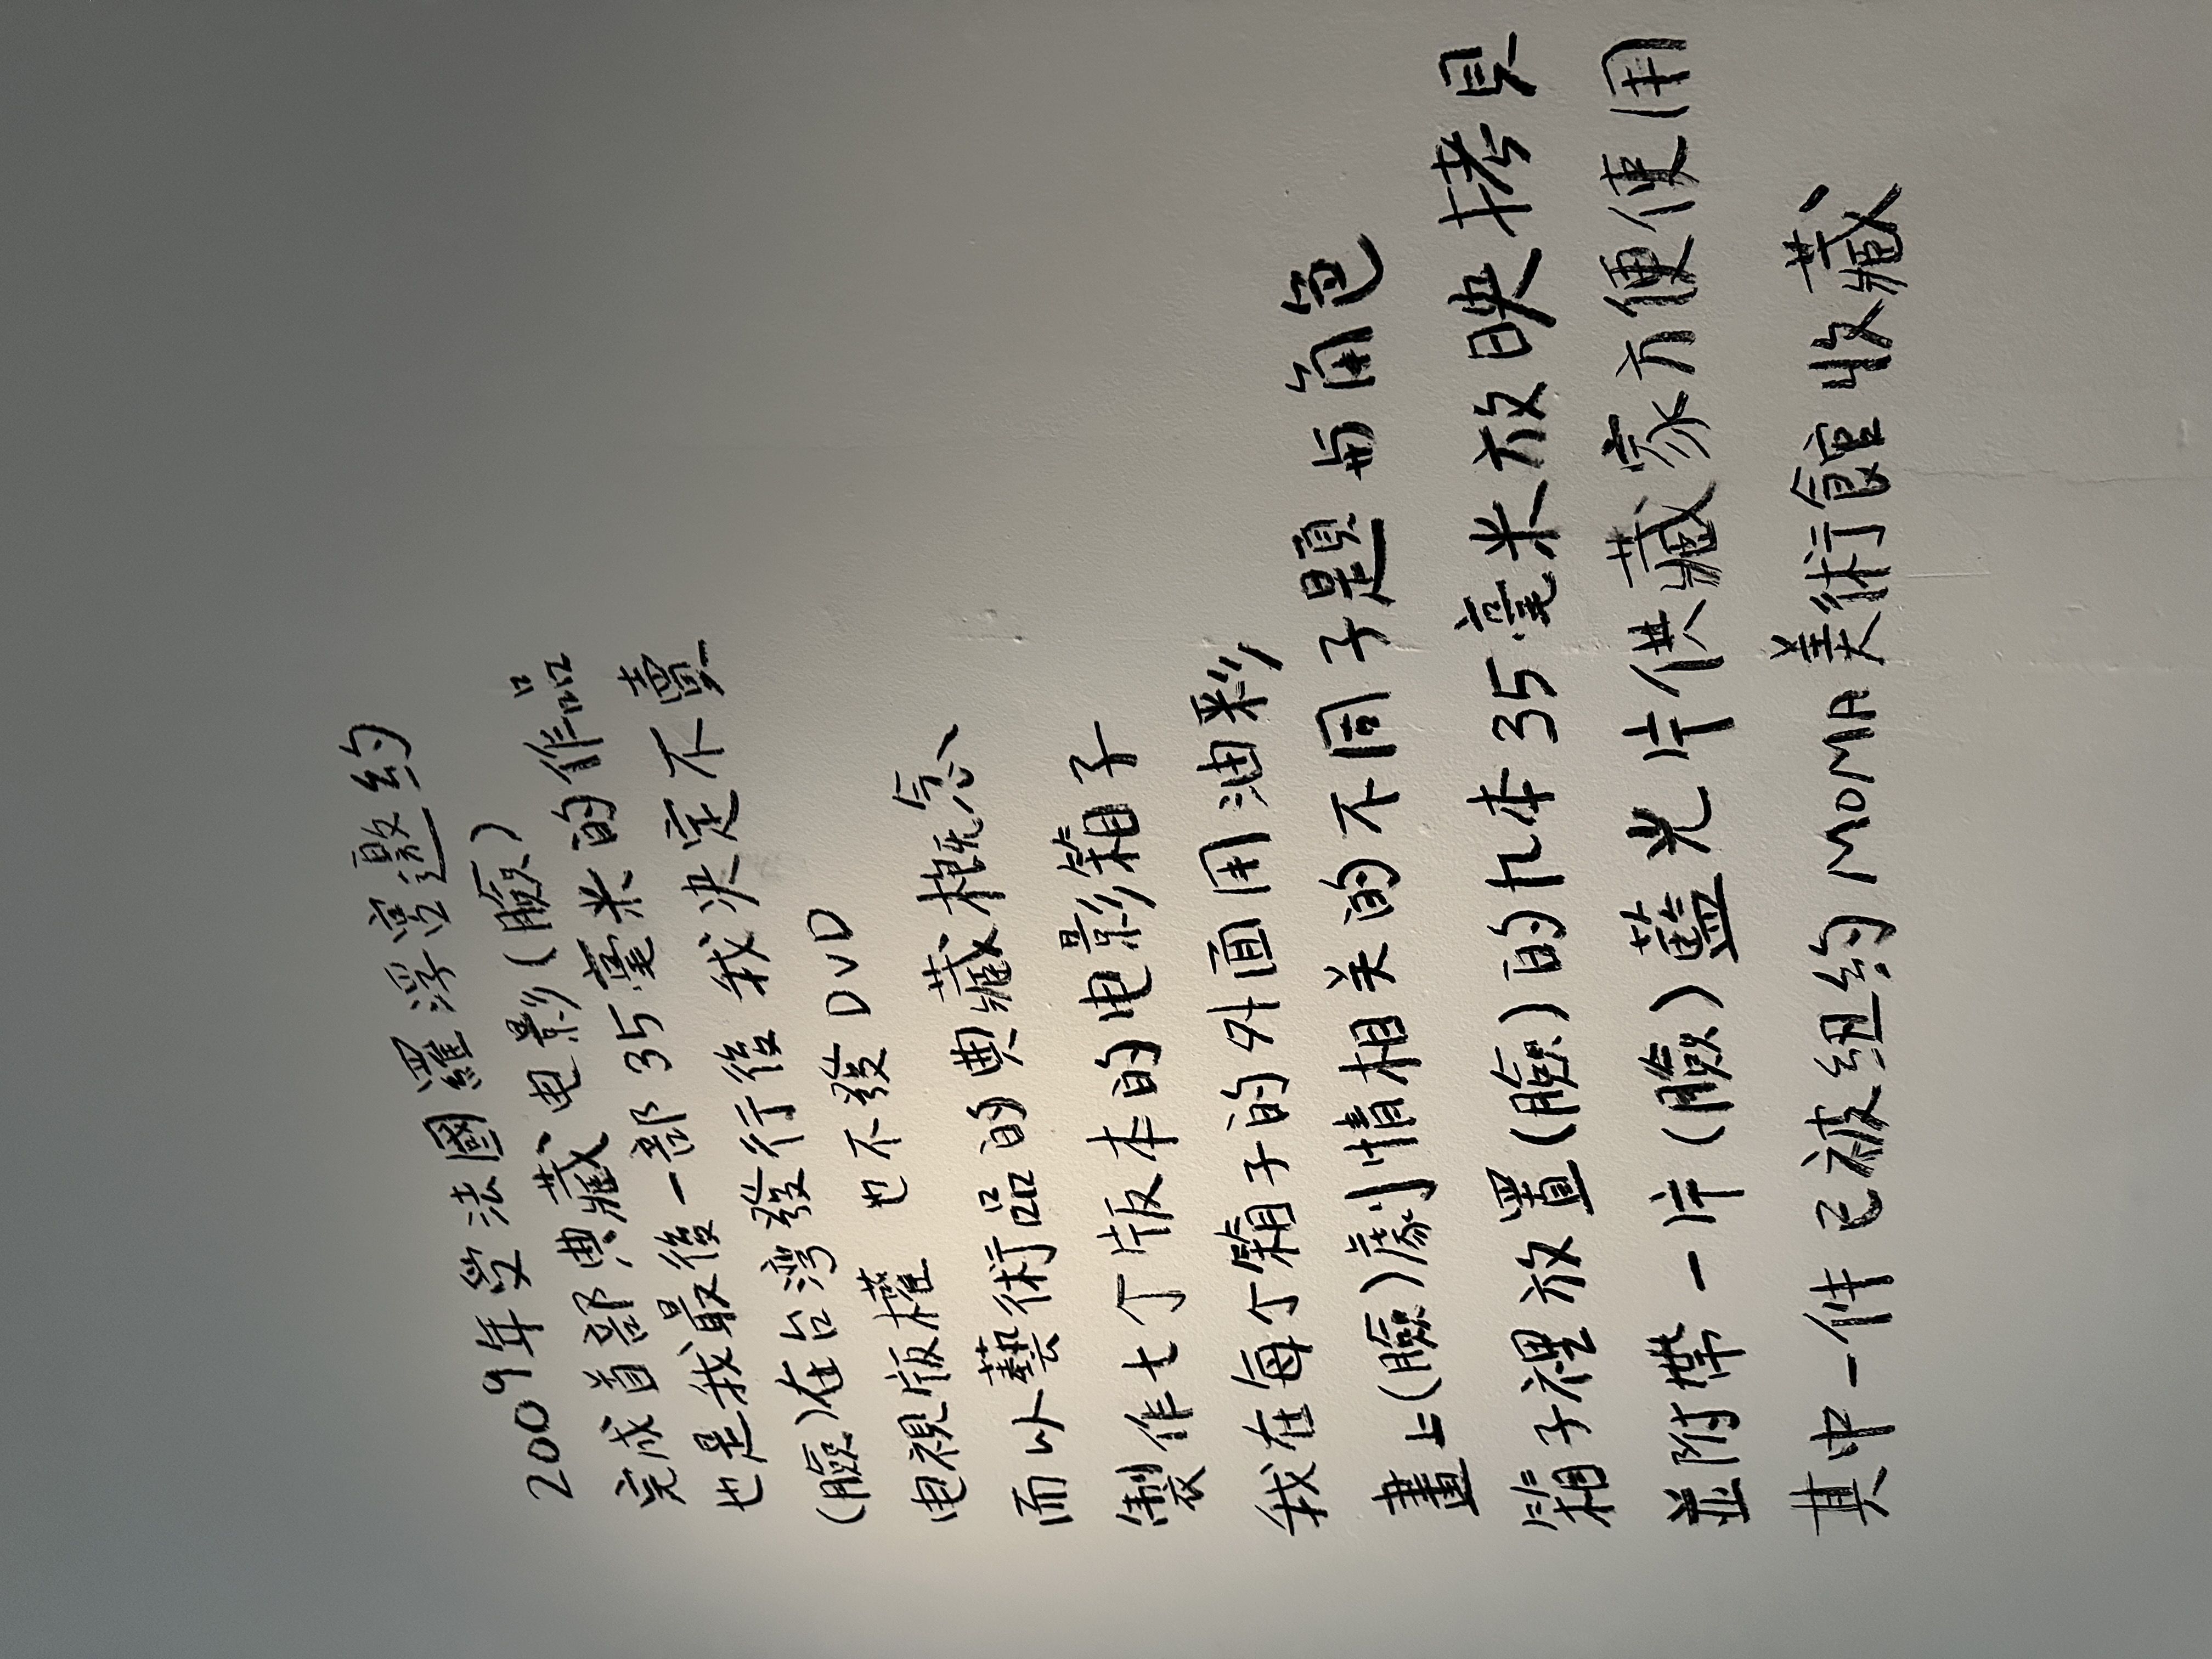 2009年受法國羅浮宮邀約
完成首部典藏电影(臉)
也是我最後一部35毫米的作品
(臉)在台湾發行後 我决定不賣
电視版權 也不發DVD
而以藝術品的典藏概念
製作七个版本的电影箱子
我在每个箱子的外面用油彩
畫上(臉)劇情相关的不同子題与角色
箱子裡放置(臉)的九本35毫米放映拷貝
並附帶一片(臉)藍光片供藏家方便使用
其中一件已被纽約MOMA美術館收藏